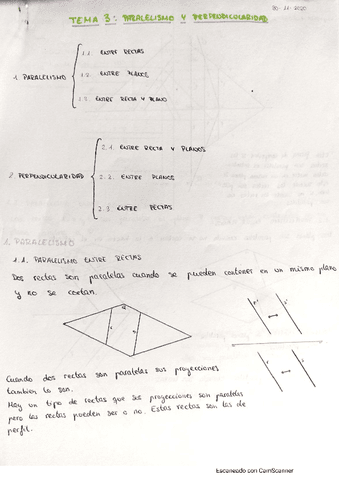 30-11-2020
TEMA 3: PARALELISMO Y PERPENDICULARIDAD
1.1. ENTRE RECTAS
1. PARALELISMO
1.2. ENTRE PLANOS
1.3. ENTRE RECTA Y PLANO
2.1 ENTRE RECTA Y PLANOS
2. PERPENDICULARIDAD
2.2. ENTRE PLANOS
2.3 ENTRE RECTAS
1. PARALELISMO
1.1. PARALELISMO ENTRE RECTAS
Dos rectas son paralelas cuando se pueden contener en un mismo plano
y no se cortan.
Cuando dos rectas son paralelas sus proyecciones
tambien lo son.
Hay un tipo de rectas que sus proyecciones son paralelas
pero las rectas pueden ser o no. Estas rectas son las de
perfil.
Escaneado con CamScanner